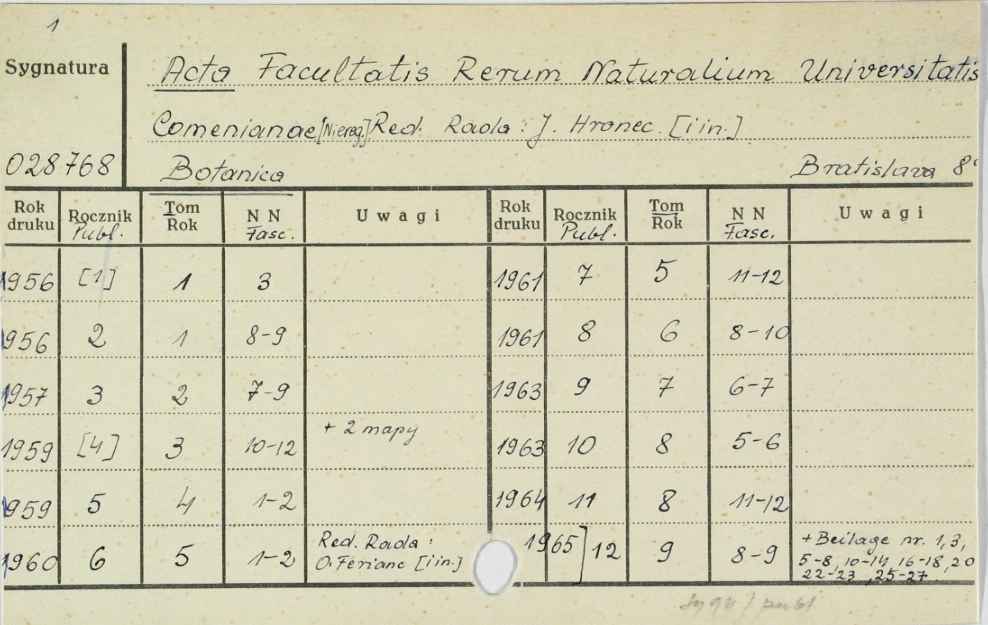 1
Sygnatura
Acta Facultatis Rerum Naturalium Universitatis
Comenianae [Niereg.] Red. Rada: J. Hronec. [i in.]
028768 Botanica Bratislava 8°
Rok druku Rocznik Publ. Tom Rok N N Fasc. Uwagi Rok druku Rocznik Publ. Tom Rok N N Fasc. Uwagi
1956 [1] 1 3 1961 7 5 11-12
1956 2 1 8-9 1961 8 6 8-10
1957 3 2 7-9 1963 9 7 6-7
1959 [4] 3 10-12 + 2 mapy 1963 10 8 5-6
1959 5 4 1-2 1964 11 8 11-12
1960 6 5 1-2 Red. Rada: O. Ferianc [i in.] 1965] 12 9 8-9 + Beilage nr. 1,3, 5-8, 10-14, 16-18, 20 22-23, 25-27.